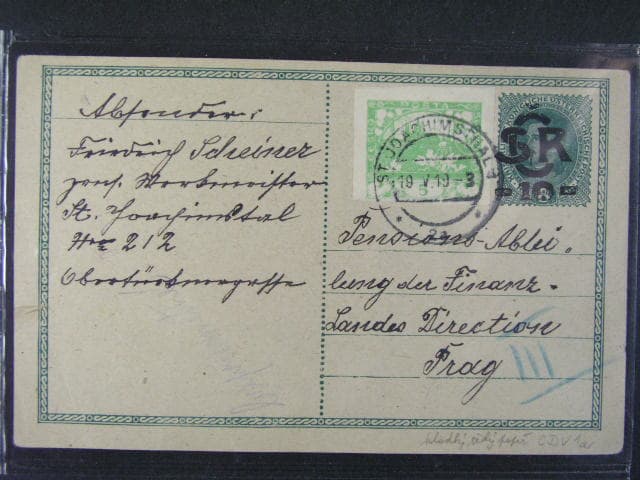 Absender:
Friedrich Scheiner
pens. Werkmeister
St. Joachimstal
Nro 212
Obertürknergasse
POŠTA
ST. JOACHIMSTHAL 1
19 V. 19 3
* 2a *
ČSR
- 10 -
Pensions-Abtei-
lung der Finanz-
Landes Direction
Prag
III
hladký, papír CDV 1